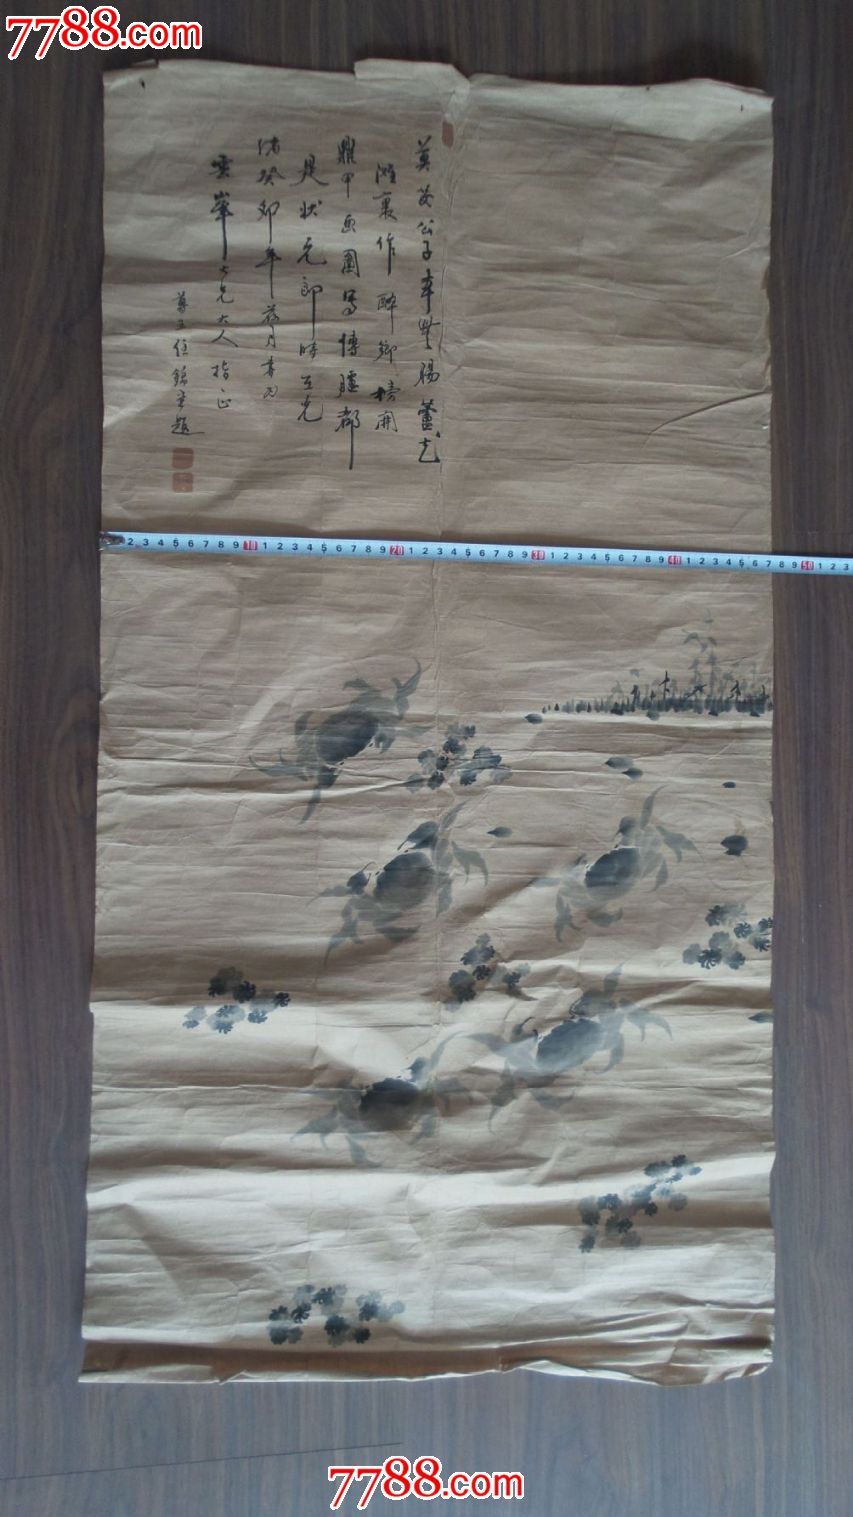 7788.com
7788.com
莫笑公子本無腸蘆花
灘裏作醉鄉榜開
鼎甲
圖寫傳臚都
是狀元郎時在光
緒癸卯年荷月
雲峯大兄大人指正
尊五任題
2 3 4 5 6 7 8 9 10 1 2 3 4 5 6 7 8 9 20 1 2 3 4 5 6 7 8 9 30 1 2 3 4 5 6 7 8 9 40 1 2 3 4 5 6 7 8 9 50 1 2 3
7788.com
7788.com